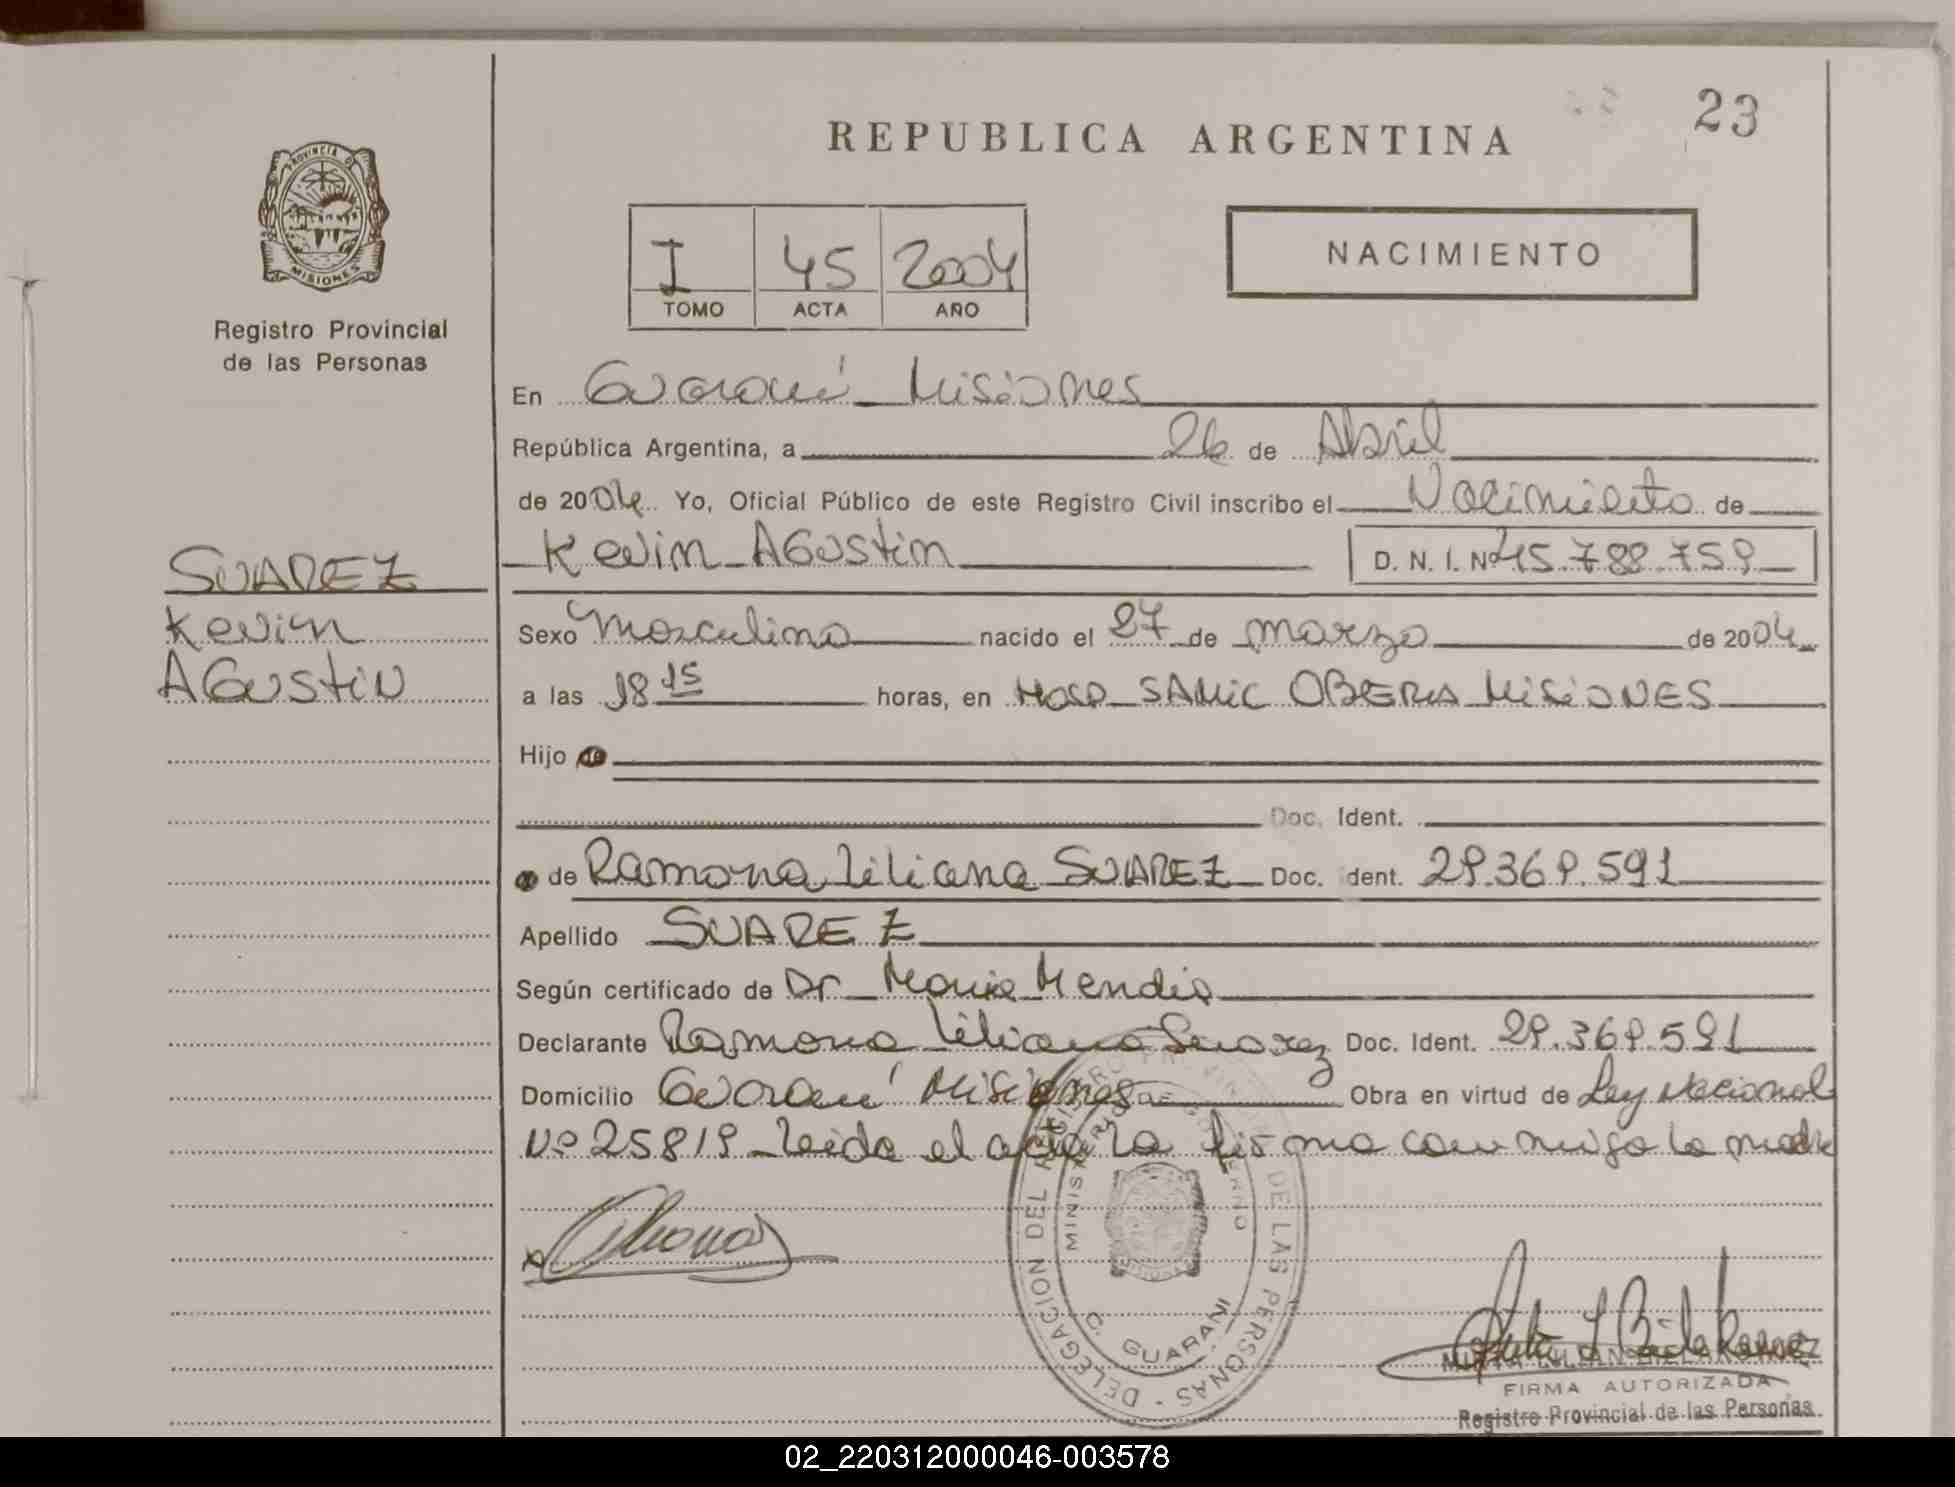 23
REPUBLICA ARGENTINA
PROVINCIA DE
MISIONES
Registro Provincial
de las Personas
I 45 2004
TOMO ACTA AÑO
NACIMIENTO
En Guaraní Misiones
República Argentina, a 26 de Abril
de 2004 Yo, Oficial Público de este Registro Civil inscribo el Nacimiento de
Kevin Agustin D. N. I. Nº 45.788.759
SUAREZ
Kevin
AGustiN
Sexo Masculino nacido el 27 de marzo de 2004
a las 18 15 horas, en HOSP SAMIC OBERA MISiONES
Hijo de
Doc. Ident.
de Ramona Liliana SUAREZ Doc. Ident. 29.369.591
Apellido SUAREZ
Según certificado de Dr Mendis
Declarante Ramona Liliana Suarez Doc. Ident. 29.369.591
Domicilio Guaraní Misiones Obra en virtud de Ley Nacional
Nº 25819 leida el acta la firma conmigo la madre
DELEGACION DEL REGISTRO PROVINCIAL DE LAS PERSONAS
MINISTERIO DE GOBIERNO
GUARANI
FIRMA AUTORIZADA
Registro Provincial de las Personas
02_220312000046-003578